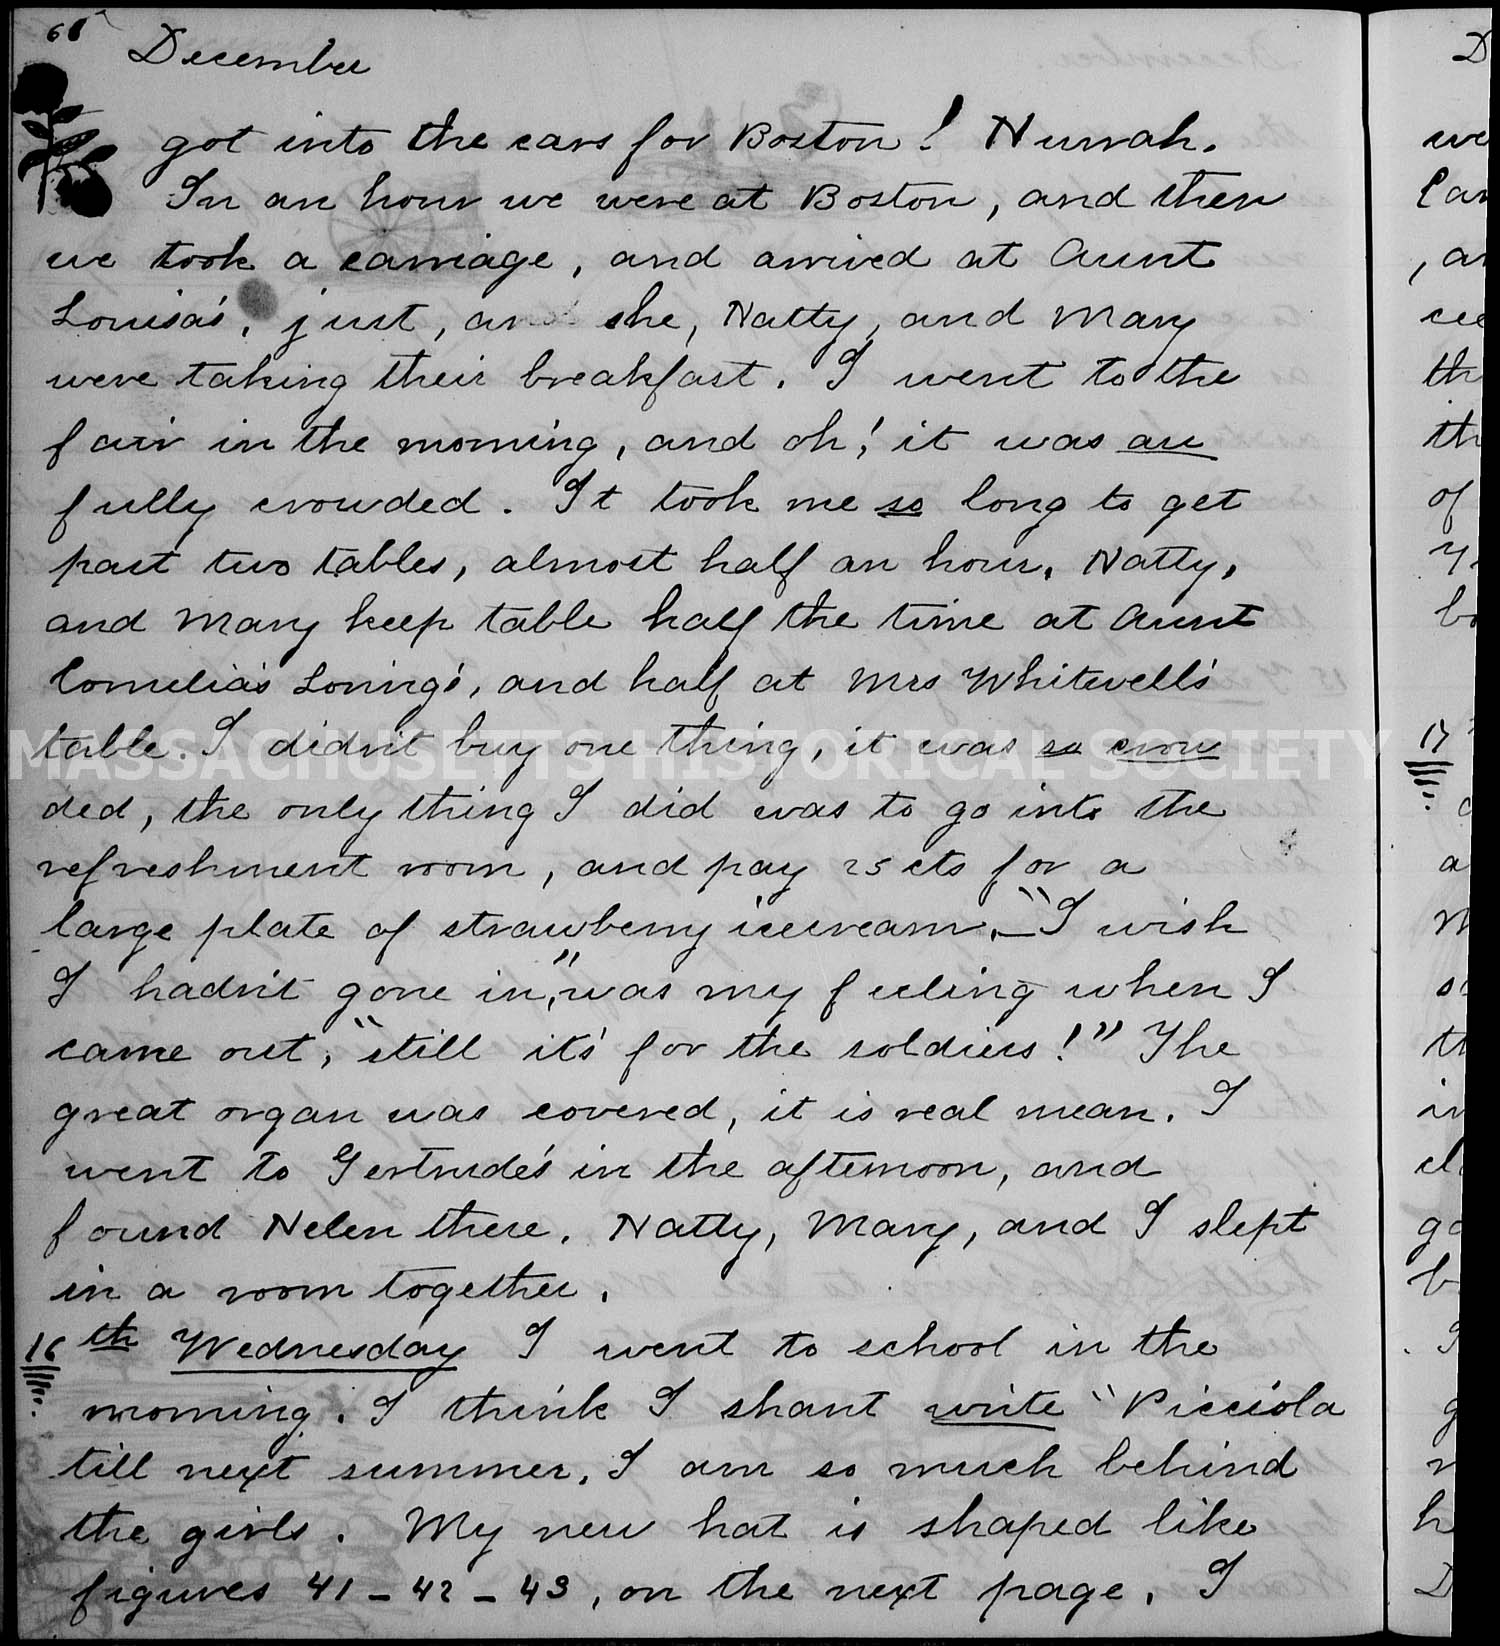 68
December
got into the cars for Boston! Hurrah.
In an hour we were at Boston, and then
we took a carriage, and arrived at Aunt
Louisa's, just, and she, Natty, and Mary
were taking their breakfast. I went to the
fair in the morning, and oh! it was aw
fully crowded. It took me so long to get
past two tables, almost half an hour. Natty,
and Mary keep table half the time at Aunt
Cornelia's Loring's, and half at Mrs Whitwell's
table. I didn't buy one thing, it was so crow
ded, the only thing I did was to go into the
refreshment room, and pay 25 cts for a
large plate of strawberry icecream.—"I wish
I hadn't gone in," was my feeling when I
came out, "still it's for the soldiers!" The
great organ was covered, it is real mean. I
went to Gertrude's in the afternoon, and
found Helen there. Natty, Mary, and I slept
in a room together.
16th Wednesday I went to school in the
morning. I think I shant write "Picciola
till next summer. I am so much behind
the girls. My new hat is shaped like
figures 41-42-43, on the next page. I
MASSACHUSETTS HISTORICAL SOCIETY
17